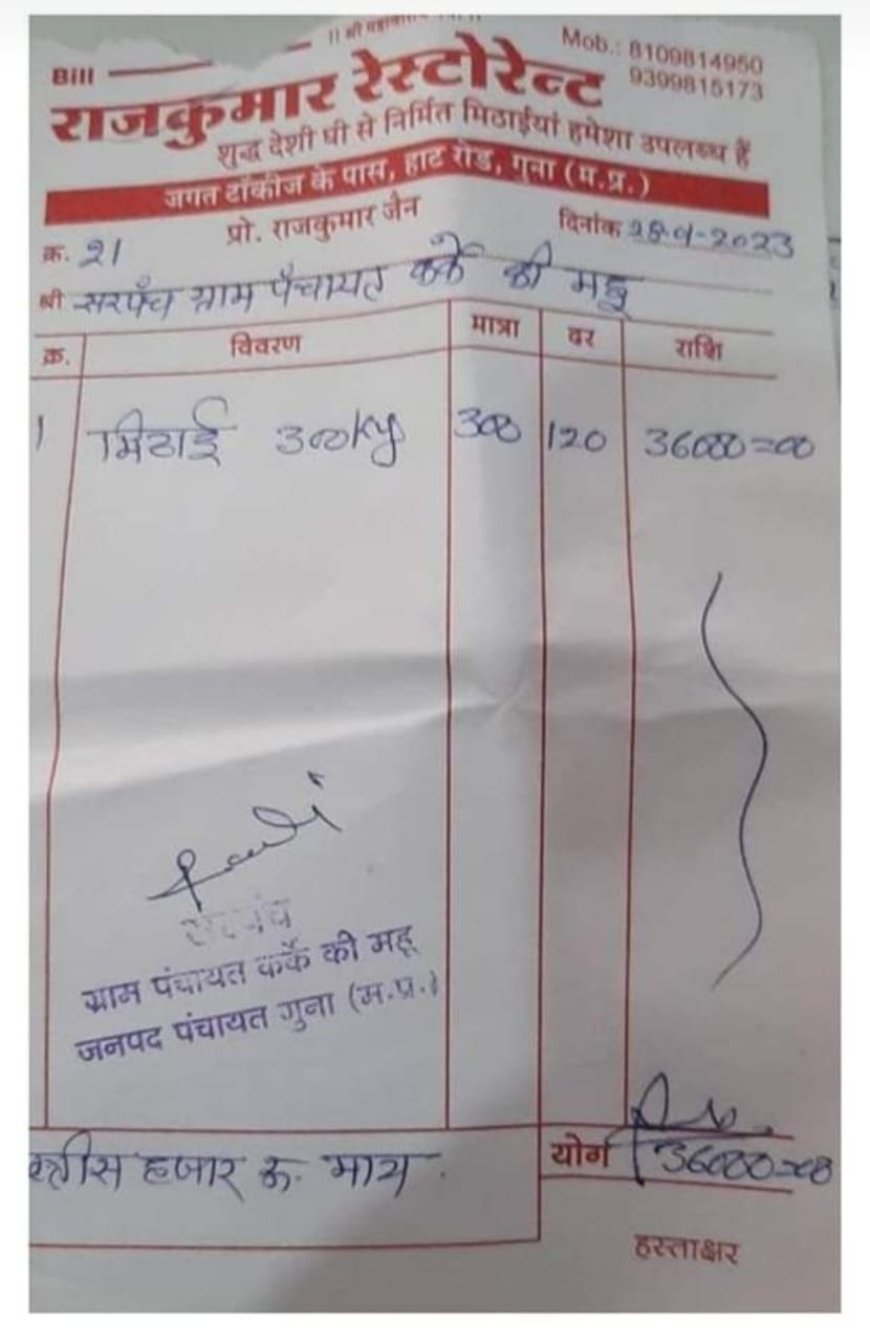 Bill
Mob.: 8109814950
9399815173
राजकुमार रेस्टोरेन्ट
शुद्ध देशी घी से निर्मित मिठाईयां हमेशा उपलब्ध हैं
जगत टॉकीज के पास, हाट रोड, गुना (म.प्र.)
प्रो. राजकुमार जैन
क्र. 21
दिनांक -2023
श्री सरपंच ग्राम पंचायत कर्के की महू
क्र. विवरण मात्रा दर राशि
1 मिठाई 300kg 300 120 36000=00
सरपंच
ग्राम पंचायत कर्के की महू
जनपद पंचायत गुना (म.प्र.)
छत्तीस हजार रू. मात्र
योग 36000=00
हस्ताक्षर